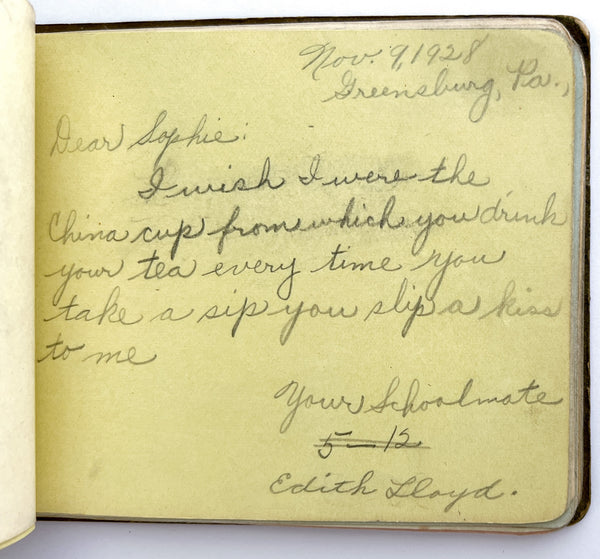 Nov. 9, 1928
Greensburg, Pa.,
Dear Sophie:
I wish I were the
China cup from which you drink
your tea every time you
take a sip you slip a kiss
to me
Your Schoolmate
5-12
Edith Lloyd.